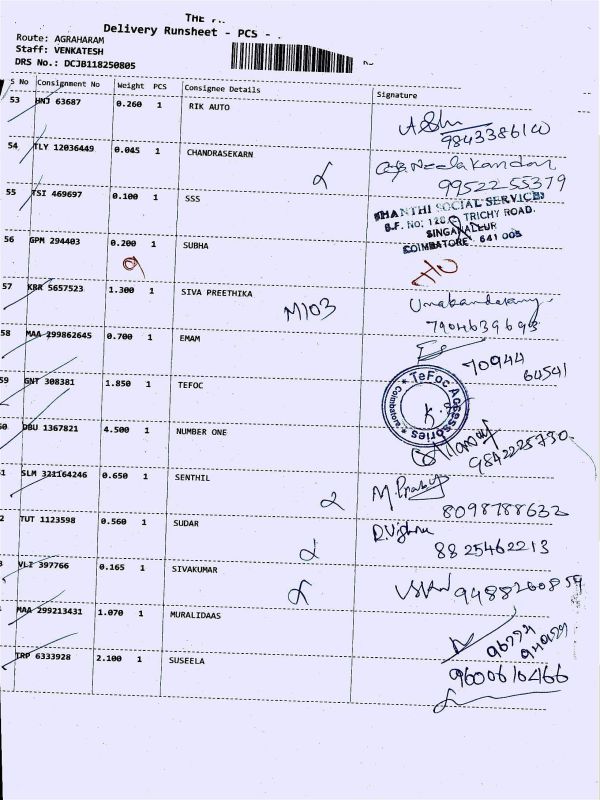 THE
Delivery Runsheet - PCS -
Route: AGRAHARAM
Staff: VENKATESH
DRS No.: DCJB118250805
S No Consignment No Weight PCS Consignee Details Signature
53 HNJ 63687 0.260 1 RIK AUTO
9843386140
54 TLY 12036449 0.045 1 CHANDRASEKARN
Neelakandan
9952255379
55 TSI 469697 0.100 1 SSS
SHANTHI SOCIAL SERVICES
TRICHY ROAD.
SINGANALLUR
COIMBATORE 641 005
56 GPM 294403 0.200 1 SUBHA
57 KRR 5657523 1.300 1 SIVA PREETHIKA
M103
7904639693
58 MAA 299862645 0.700 1 EMAM
70944
64541
59 GNT 308381 1.850 1 TEFOC
TeFoc Accessories
Coimbatore
K.
60 DBU 1367821 4.500 1 NUMBER ONE
9842225730
1 SLM 321164246 0.650 1 SENTHIL
8098788632
2 TUT 1123598 0.560 1 SUDAR
R.Vishnu
8825462213
3 VLI 397766 0.165 1 SIVAKUMAR
9488260859
MAA 299213431 1.070 1 MURALIDAAS
TRP 6333928 2.100 1 SUSEELA
9600610466